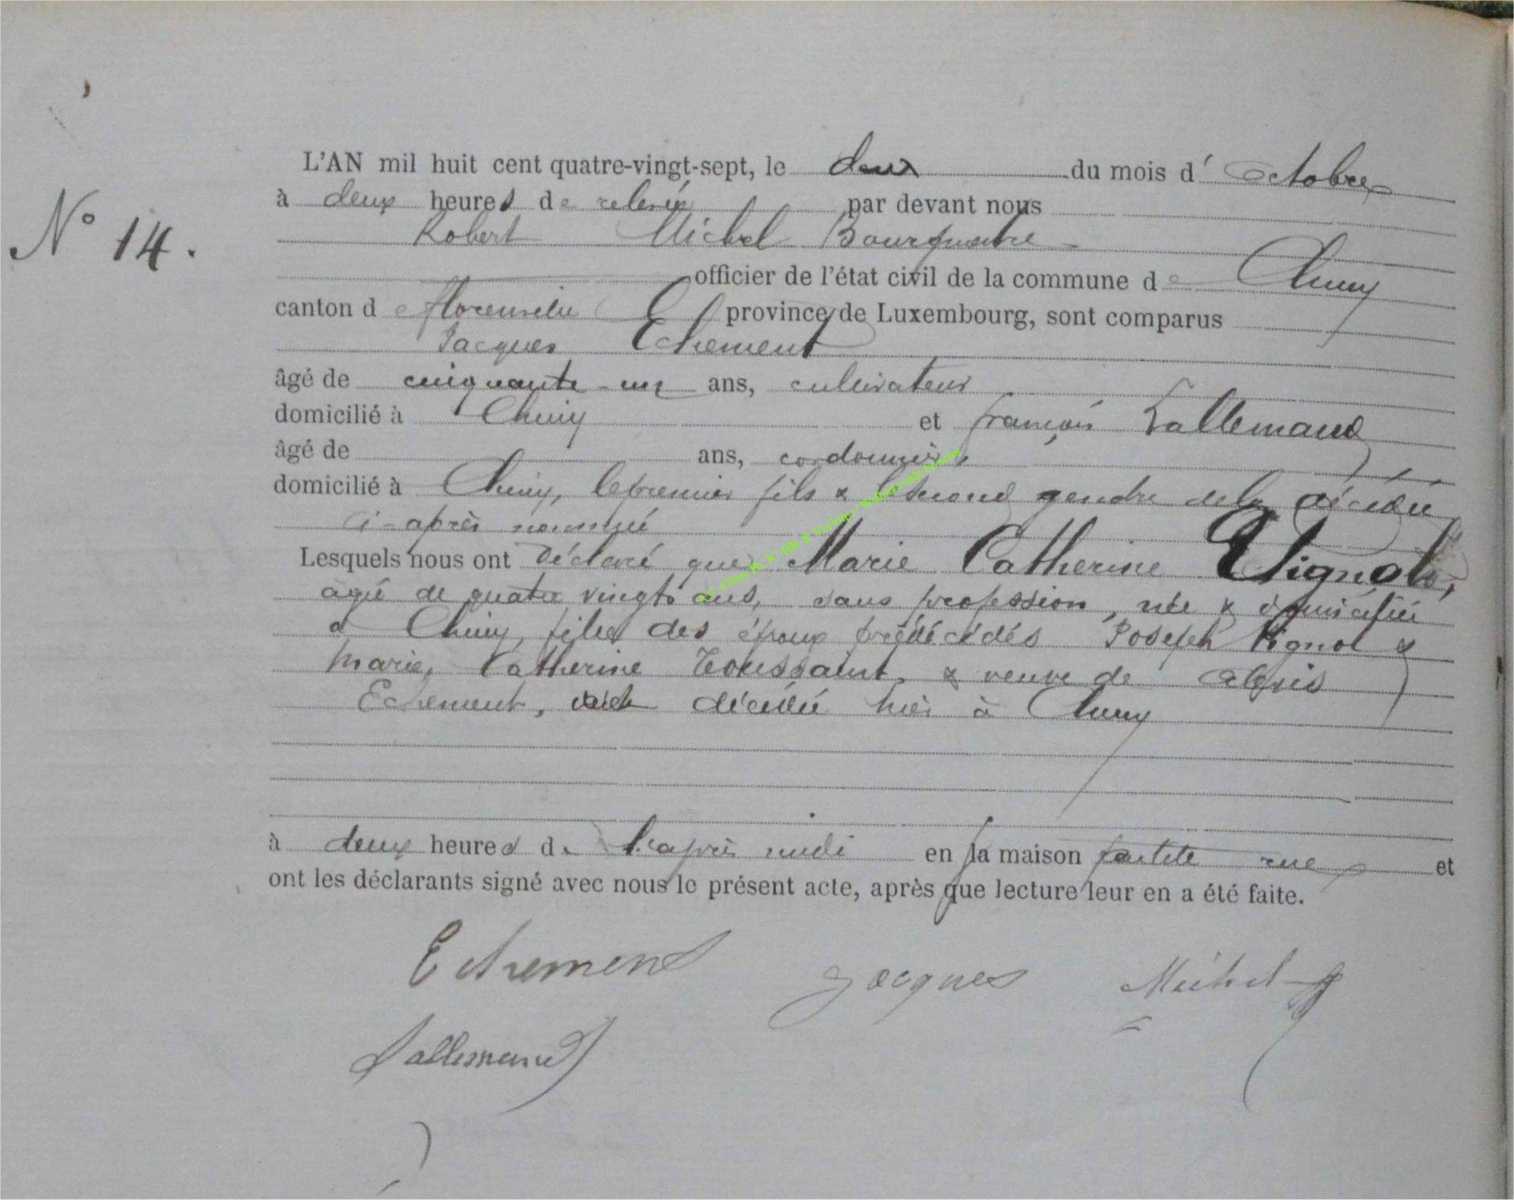 L'AN mil huit cent quatre-vingt-sept, le deux du mois d' octobre
à deux heures de relevée par devant nous
Robert Michel Bourgmestre
officier de l'état civil de la commune de Chiny
canton de florenville province de Luxembourg, sont comparus
Jacques Echement
âgé de cinquante-un ans, cultivateur
domicilié à Chiny et françois Lallemand
âgé de ans, cordonnier,
domicilié à Chiny, le premier fils & le second gendre de la décédée
ci-après nommée
Lesquels nous ont déclaré que Marie Catherine Vignol,
agée de quatre vingts ans, sans profession, née & domiciliée
à Chiny, fille des époux prédécédés Joseph Vignol &
marie, Catherine Toussaint, & veuve de alexis
Echement, est décédée hier à Chiny
à deux heures de l'après midi en sa maison petite rue et
ont les déclarants signé avec nous le présent acte, après que lecture leur en a été faite.
Echement Jacques Michel
Lallemand
N° 14.